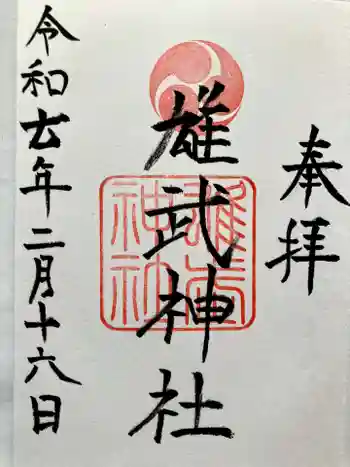 奉拝
雄武神社
雄武神社
令和五年二月十六日